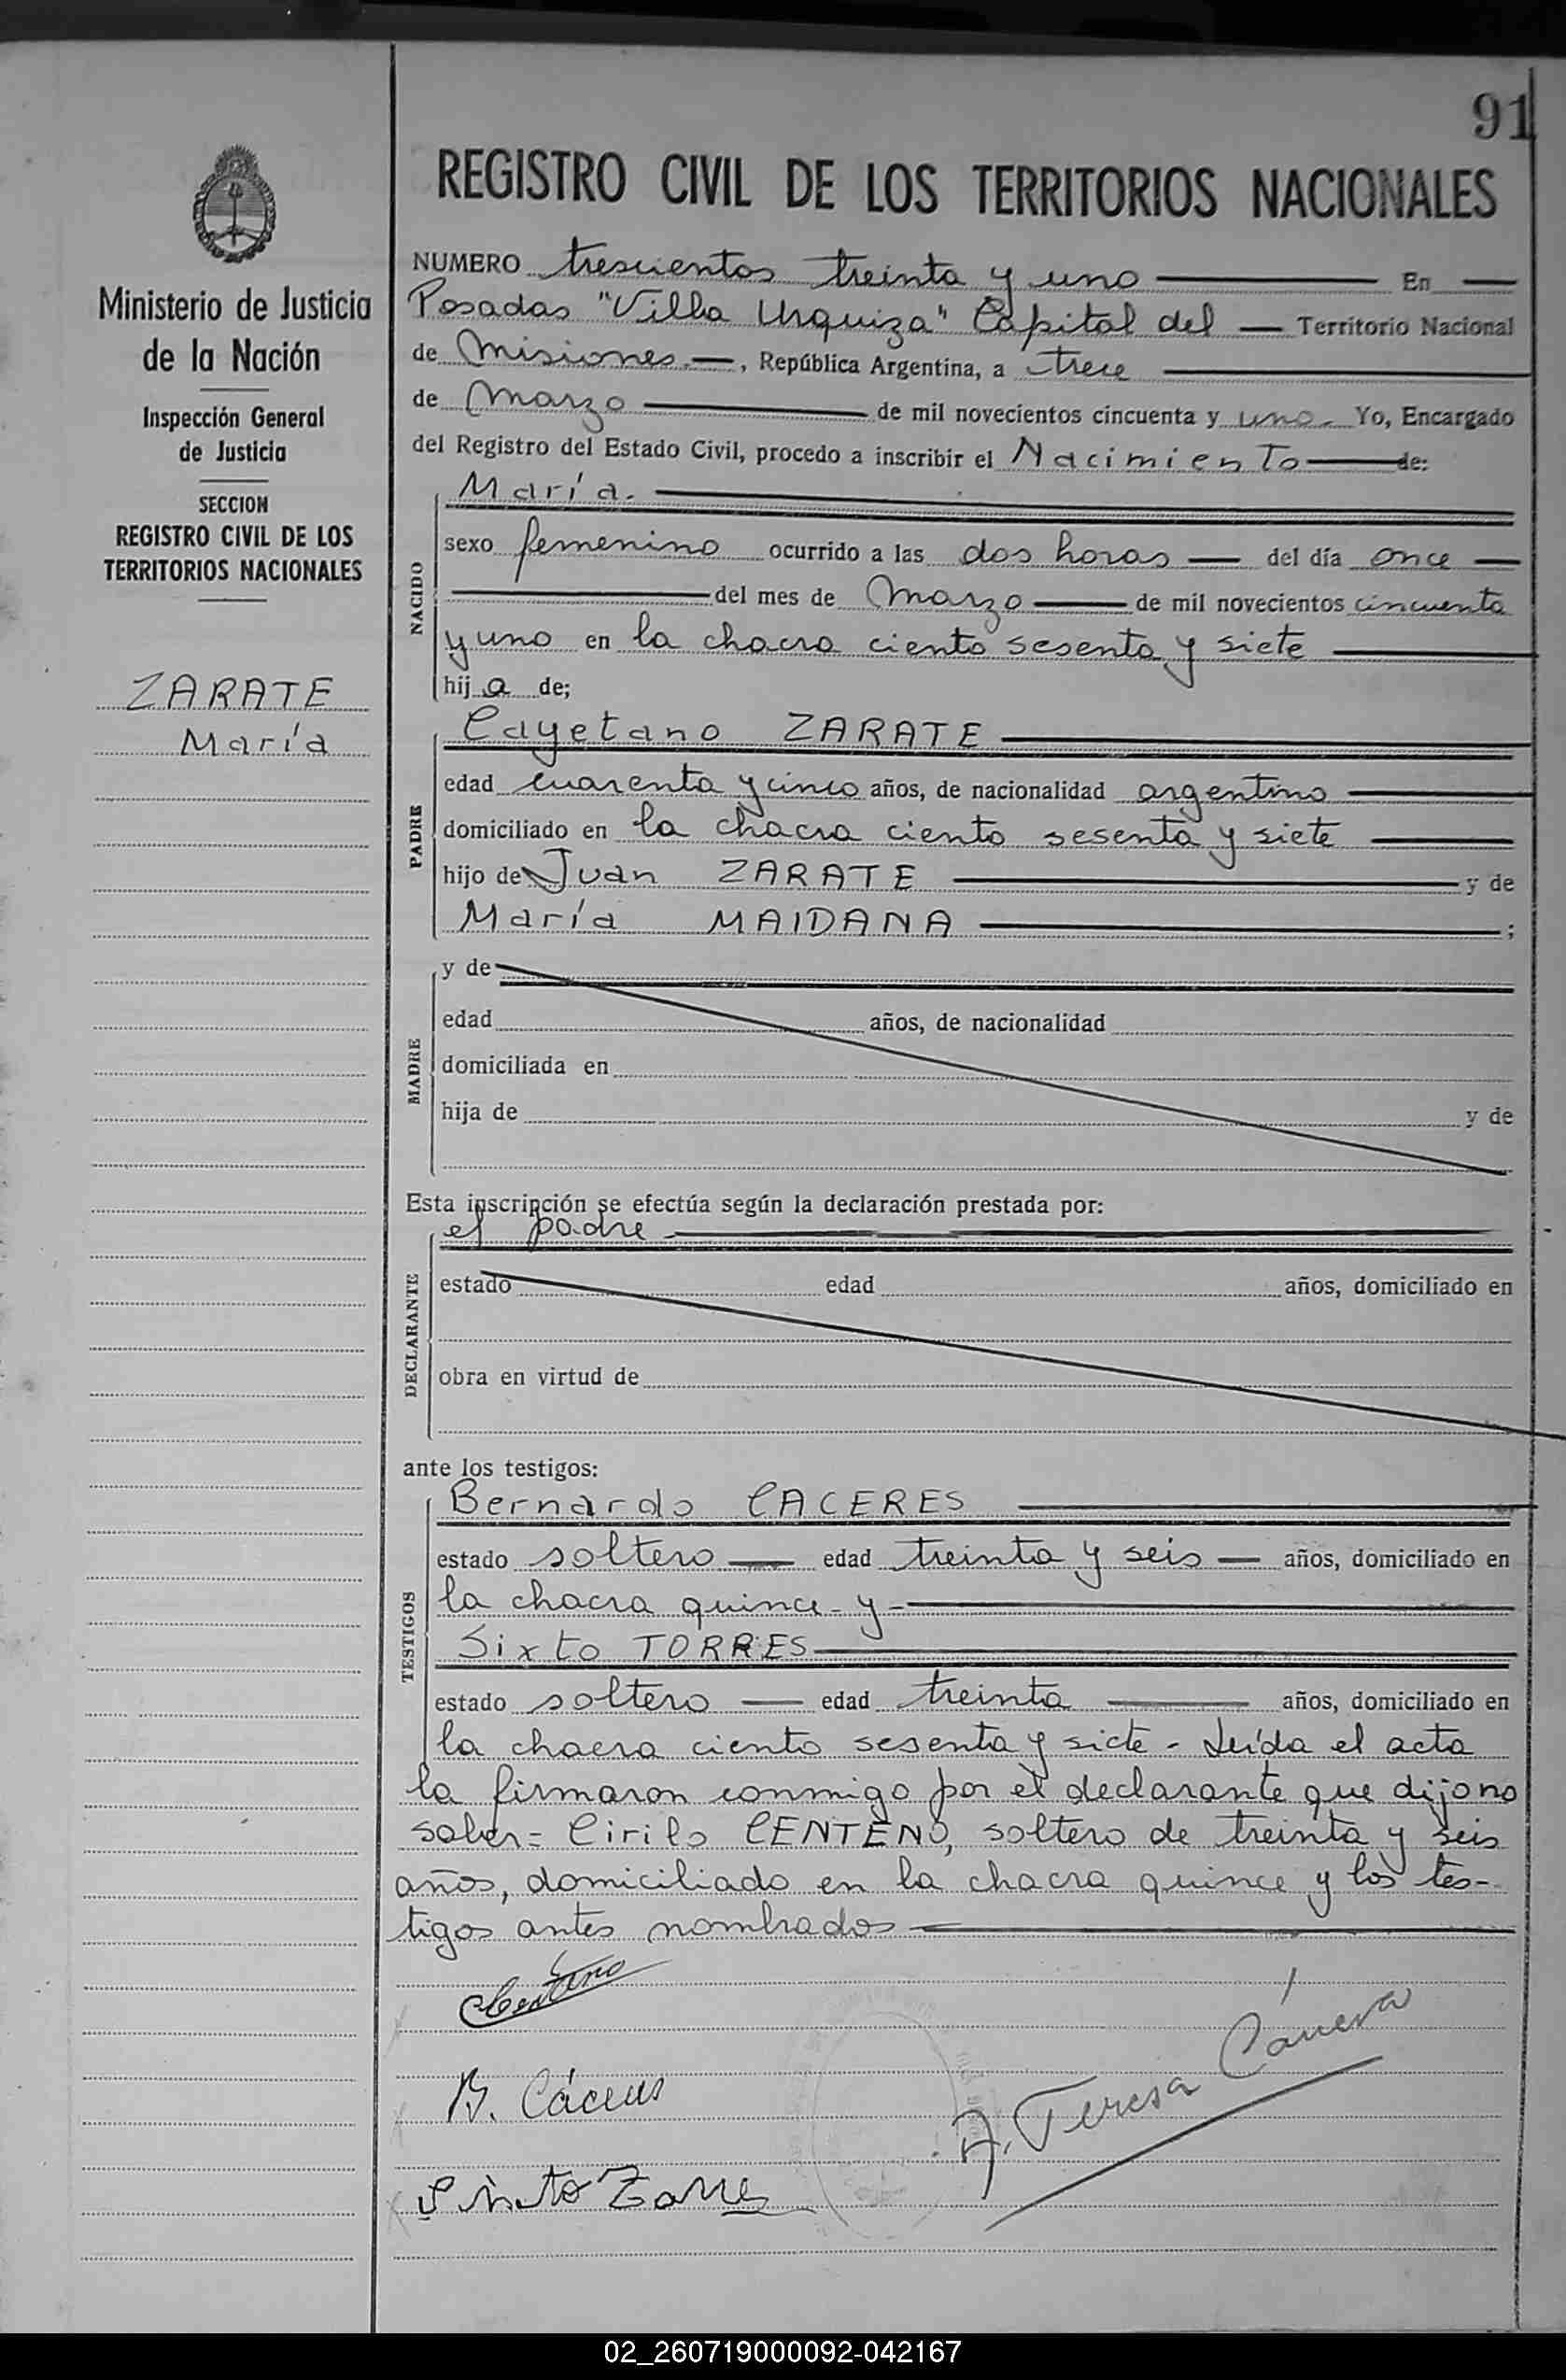 91
REGISTRO CIVIL DE LOS TERRITORIOS NACIONALES
Ministerio de Justicia
de la Nación
Inspección General
de Justicia
SECCION
REGISTRO CIVIL DE LOS
TERRITORIOS NACIONALES
ZARATE
María
NUMERO trescientos treinta y uno En
Posadas "Villa Urquiza" Capital del Territorio Nacional
de Misiones.-, República Argentina, a trece
de Marzo de mil novecientos cincuenta y uno.- Yo, Encargado
del Registro del Estado Civil, procedo a inscribir el Nacimiento de:
NACIDO
María.
sexo femenino ocurrido a las dos horas del día once
del mes de Marzo de mil novecientos cincuenta
y uno en la chacra ciento sesenta y siete
hij a de;
PADRE
Cayetano ZARATE
edad cuarenta y cinco años, de nacionalidad argentino
domiciliado en la chacra ciento sesenta y siete
hijo de Juan ZARATE y de
María MAIDANA ;
MADRE
y de
edad años, de nacionalidad
domiciliada en
hija de y de
Esta inscripción se efectúa según la declaración prestada por:
DECLARANTE
el padre
estado edad años, domiciliado en
obra en virtud de
ante los testigos:
TESTIGOS
Bernardo CACERES
estado soltero edad treinta y seis años, domiciliado en
la chacra quince - y -
Sixto TORRES
estado soltero edad treinta años, domiciliado en
la chacra ciento sesenta y siete - Leída el acta
la firmaron conmigo por el declarante que dijo no
saber = Cirilo CENTENO, soltero de treinta y seis
años, domiciliado en la chacra quince y los tes-
tigos antes nombrados
Centeno
B. Cáceres
A. Teresa
02_260719000092-042167